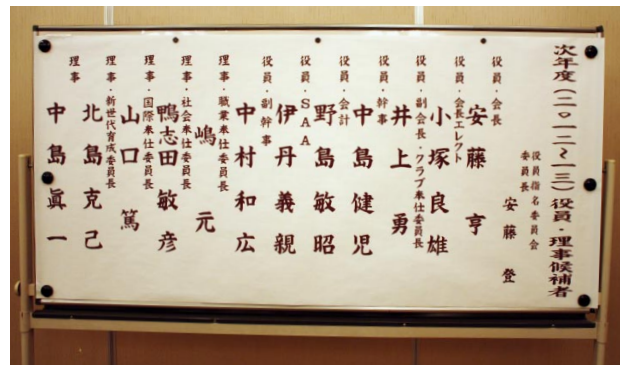 次年度（二〇一二〜一三）役員・理事候補者
役員指名委員会
委員長　安藤　登
役員・会長
安藤　亨
役員・会長エレクト
小塚良雄
役員・副会長・クラブ奉仕委員長
井上　勇
役員・幹事
中島健児
役員・会計
野島敏昭
役員・ＳＡＡ
伊丹義親
役員・副幹事
中村和広
理事・職業奉仕委員長
嶋　元
理事・社会奉仕委員長
鴨志田敏彦
理事・国際奉仕委員長
山口　篤
理事・新世代育成委員長
北島克己
理事
中島眞一